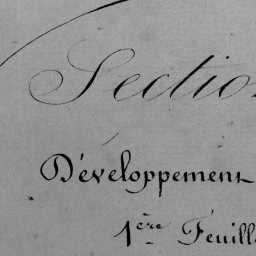 Section
Développement
1ère Feuille